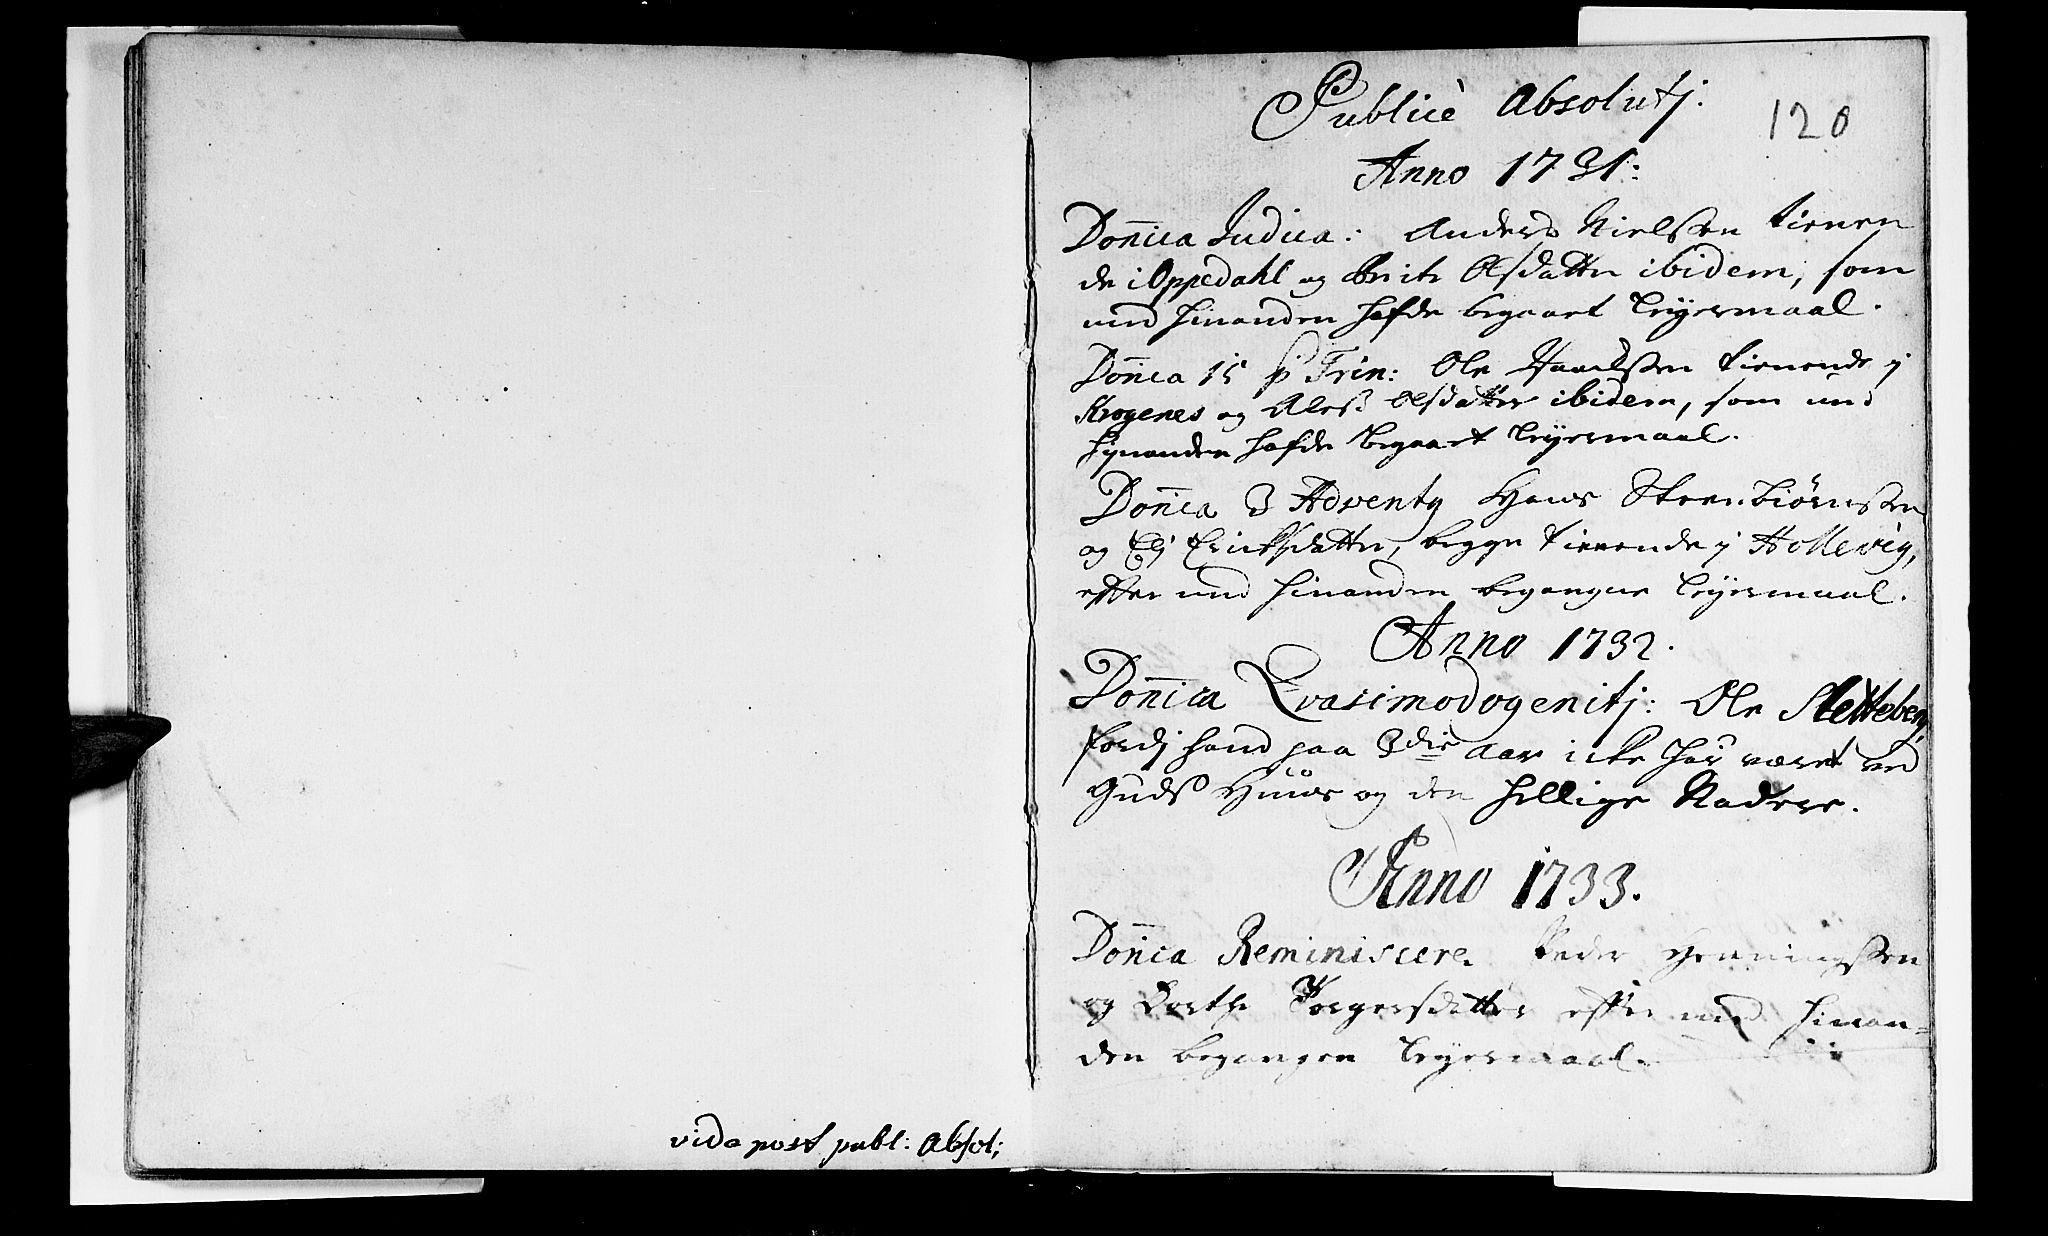 vide post publ: Absol;
Publicè Absolutj.
120
Anno 1731:
Don̄ica Judica: Anders Nielssen tienen
de i Oppedahl og Brite Olsdatter ibidem, som
med hinanden hafde begaaet Leyermaal.
Don̄ica 15 p Trin: Ole tienende j
Krogenes og Olsdatter ibidem, som med
hynanden hafde begaaet Leyermaal.
Don̄ica 3 Adventy Hans Steenbiørnssen
og Elj Ericksdatter, begge tienende j Hollevig,
efter med hinanden begangne Leyermaal.
Anno 1732.
Don̄ica Qvasimodogenitj: Ole Sletteben,
fordj hand paa 3die Aar icke har været ved
Guds Huus og den hellige Nadvere.
Anno 1733.
Don̄ica Reminiscere. Peder Henningssen
og Dorthe Torgersdatter efter med hinan=
den begangen Leyermaal.